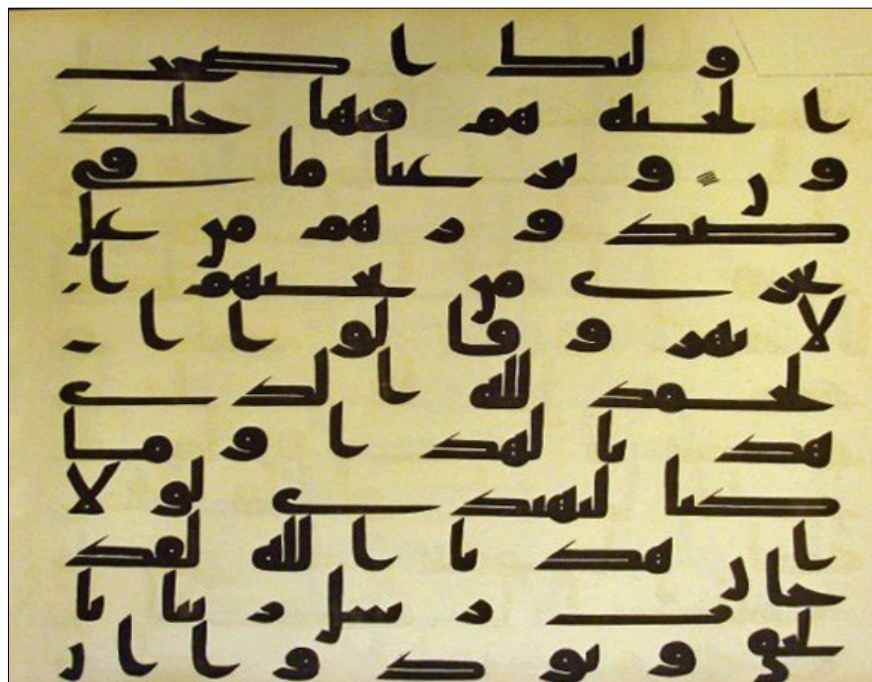 ولئك اصحب
الجنة هم فيها خلد
ون ونزعنا ما في
صدورهم من غل
تجري من تحتهم ا
لانهر وقالوا ا
لحمد لله الذي
هدنا لهذا وما
كنا لنهتدي لولا
ان هدنا الله لقد
جات رسل ربنا با
لحق ونودوا ان